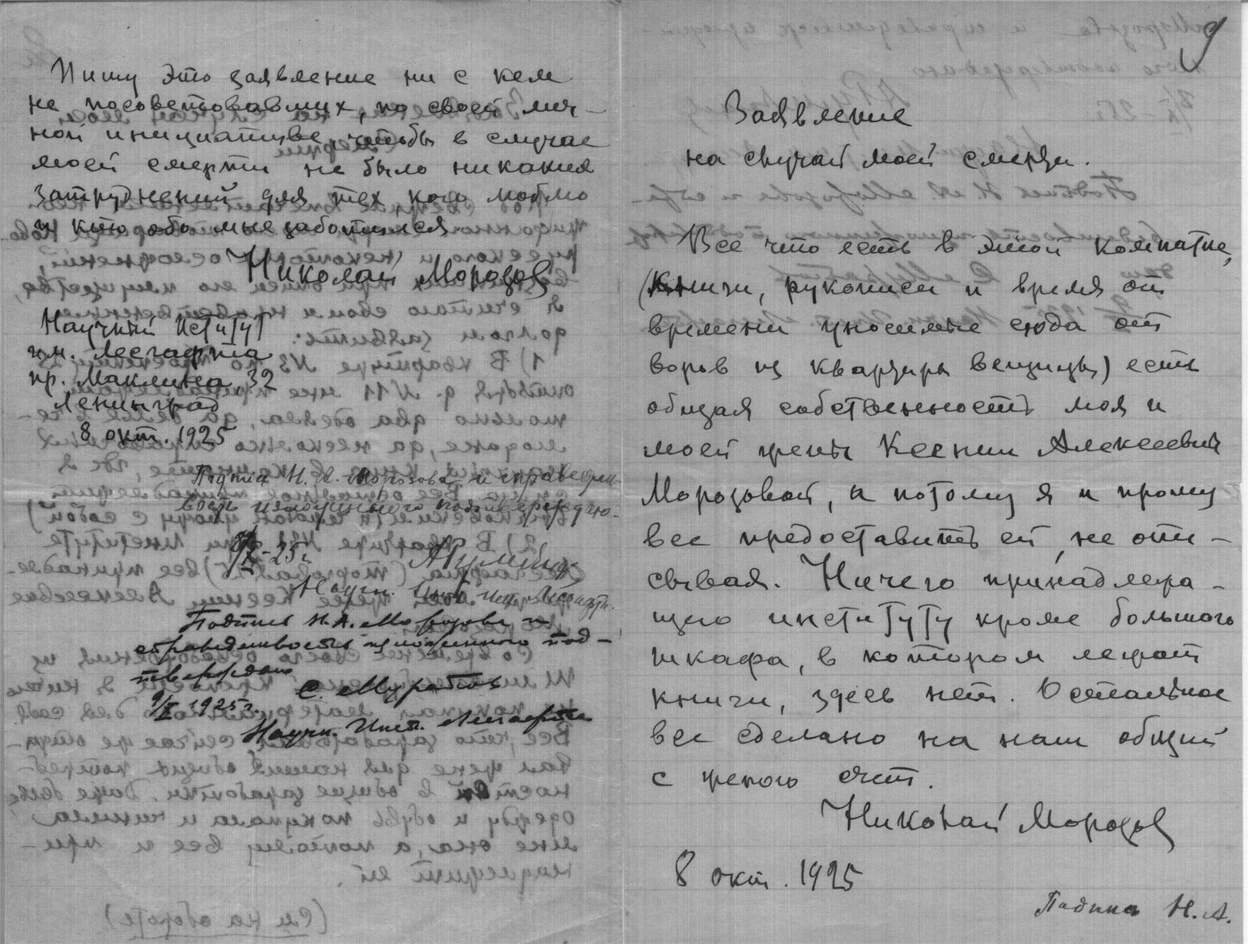 Пишу это заявление ни с кем
не посоветовавшись, по своей лич-
ной инициативе, чтобы в случае
моей смерти не было никаких
затруднений для тех кого люблю
и кто обо мне заботился
Николай Морозов
Научный Институт
им. Лесгафта
пр. Маклина, 32
Ленинград
8 окт. 1925
Подпись Н. А. Морозова и справедли-
вость изложенного подтверждаю.
9/X-25 г.
Научн. Инст. им. Лесгафта.
Подпись Н. А. Морозова и
справедливость изложенного под-
тверждаю
С. Муратов
9/X 1925 г.
Научн. Инст. Лесгафта
9
Заявление
на случай моей смерти.
Все что есть в этой комнате,
(книги, рукописи и время от
времени уносимые сюда от
воров из квартиры вещицы) есть
общая собственность моя и
моей жены Ксении Алексеевны
Морозовой, а потому я и прошу
все предоставить ей, не опи-
сывая. Ничего принадлежа-
щего институту кроме большого
шкафа, в котором лежат
книги, здесь нет. Остальное
все сделано на наш общий
с женою счет.
Николай Морозов
8 окт. 1925
Подпись Н. А.